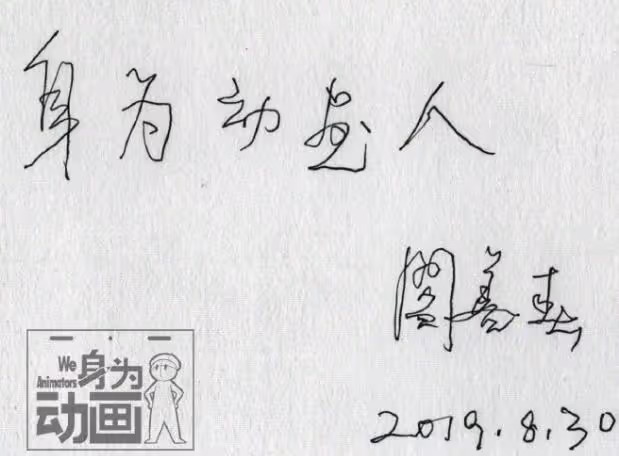 身为动画人
阎善春
2019.8.30
We 身为
Animators
动画